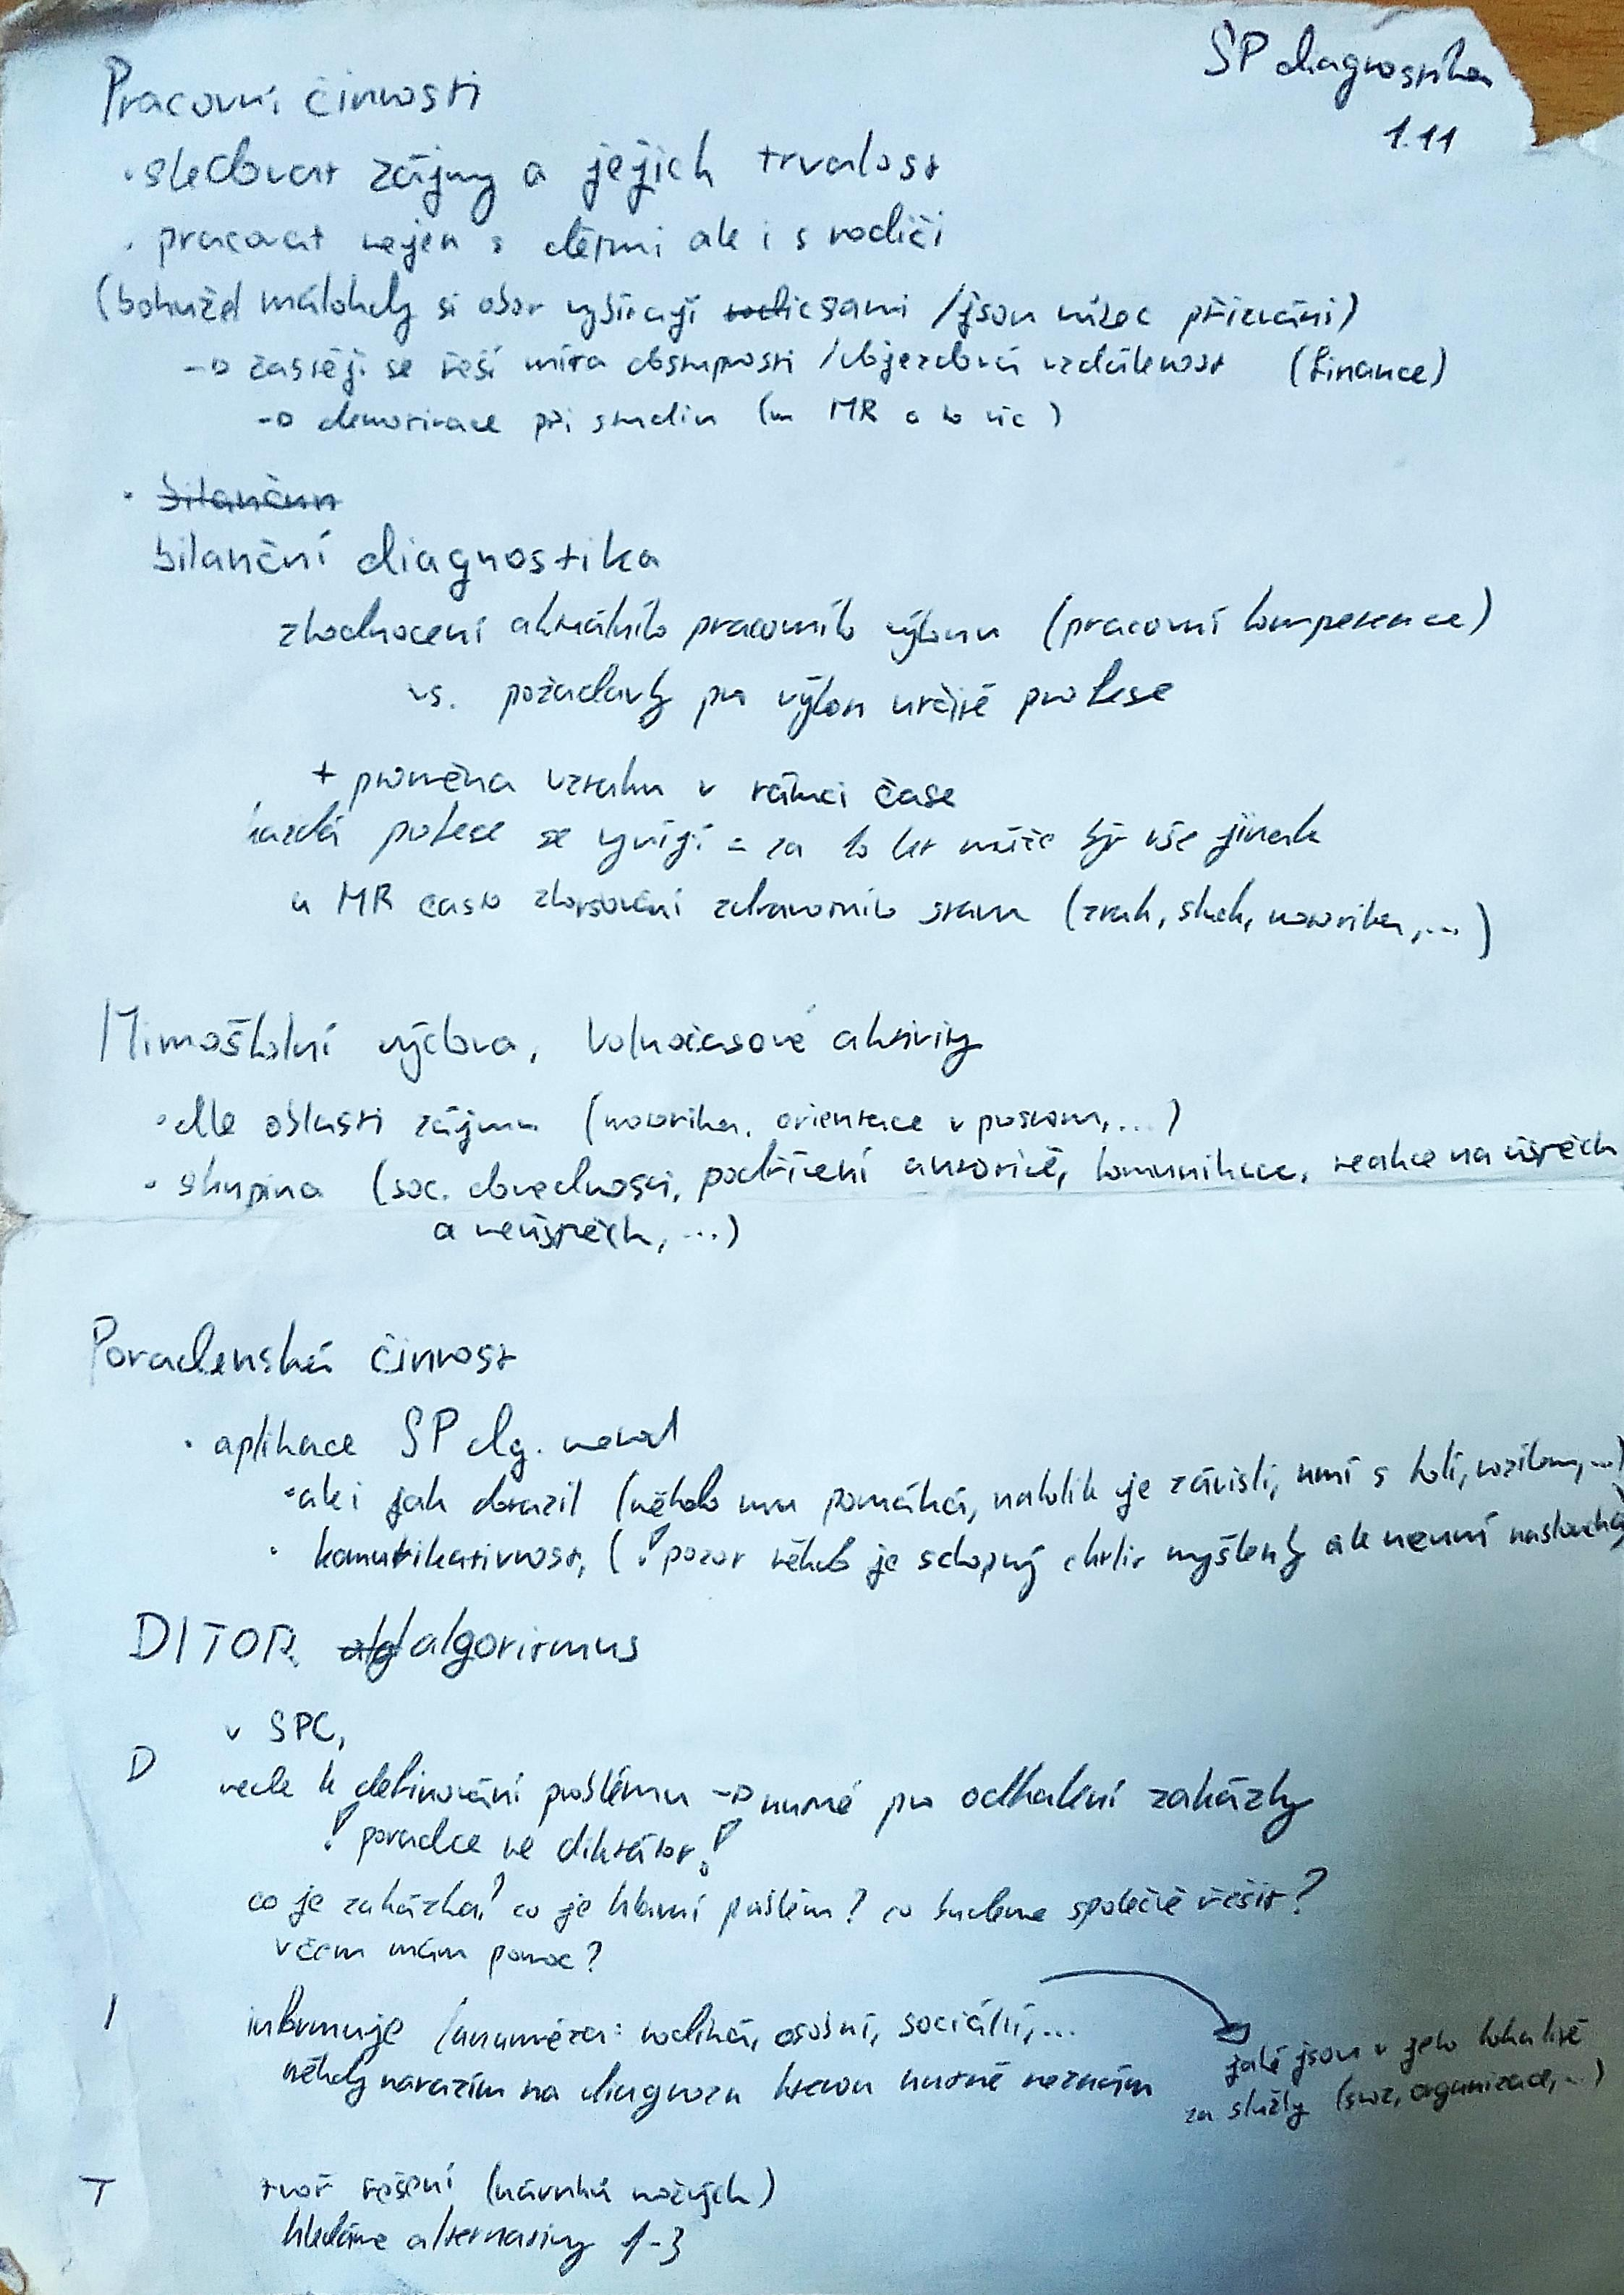 SP diagnostika
1.11
Pracovní činnosti
• sledovat zájmy a jejich trvalost
• pracovat nejen s dětmi ale i s rodiči
(bohužel málokdy si obor vybírají sami / jsou vůbec přizváni)
→ častěji se řeší míra obsazenosti / dojezdová vzdálenost (finance)
→ demotivace při studiu (u MR o to víc)
• bilančnn
bilanční diagnostika
zhodnocení aktuálního pracovního výkonu (pracovní kompetence)
vs. požadavky pro výkon určité profese
+ proměna vztahu v rámci čase
každá profese se vyvíjí = za 10 let může být vše jinak
u MR často zhoršování zdravotního stavu (zrak, sluch, motorika, ...)
Mimoškolní výchova, volnočasové aktivity
• dle oblasti zájmu (motorika, orientace v prostoru, ...)
• skupina (soc. dovednosti, podřízení autoritě, komunikace, reakce na úspěch
a neúspěch, ...)
Poradenská činnost
• aplikace SP dg. metod
• ale i jak dorazil (někdo mu pomáhá, nakolik je závislí, umí s holí, vozíkem, ...)
• komunikativnost, (! pozor někdo je schopný chrlit myšlenky ale neumí naslouchat)
DITOR alg algoritmus
v SPC,
D vede k definování problému → nutné pro odhalení zakázky
! poradce ne diktátor!
co je zakázka? co je hlavní problém? co budeme společně řešit?
v čem mám pomoc?
I informuje (anamnéza: rodinná, osobní, sociální, ...
někdy narazím na diagnozu kterou nutně neznám
jaké jsou v jeho lokalitě
za služby (svoz, organizace, ...)
T tvoř řešení (návrhů možných)
hledáme alternativy 1-3